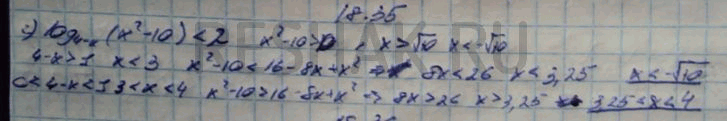 18.35
log₄₋ₓ(x²-10)<2 x²-10>0, x>√10 x<-√10
4-x>1 x<3 x²-10<16-8x+x² ⇒ 8x<26 x<3,25 x<-√10
0<4-x<1 3<x<4 x²-10>16-8x+x² ⇒ 8x>26 x>3,25 3,25<x<4